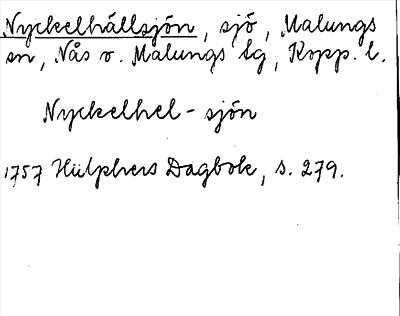 Nyckelhällsjön, sjö, Malungs
sn, Nås o. Malungs tg, Kopp. l.
Nyckelhel-sjön
1757 Hülphers Dagbok, s. 279.